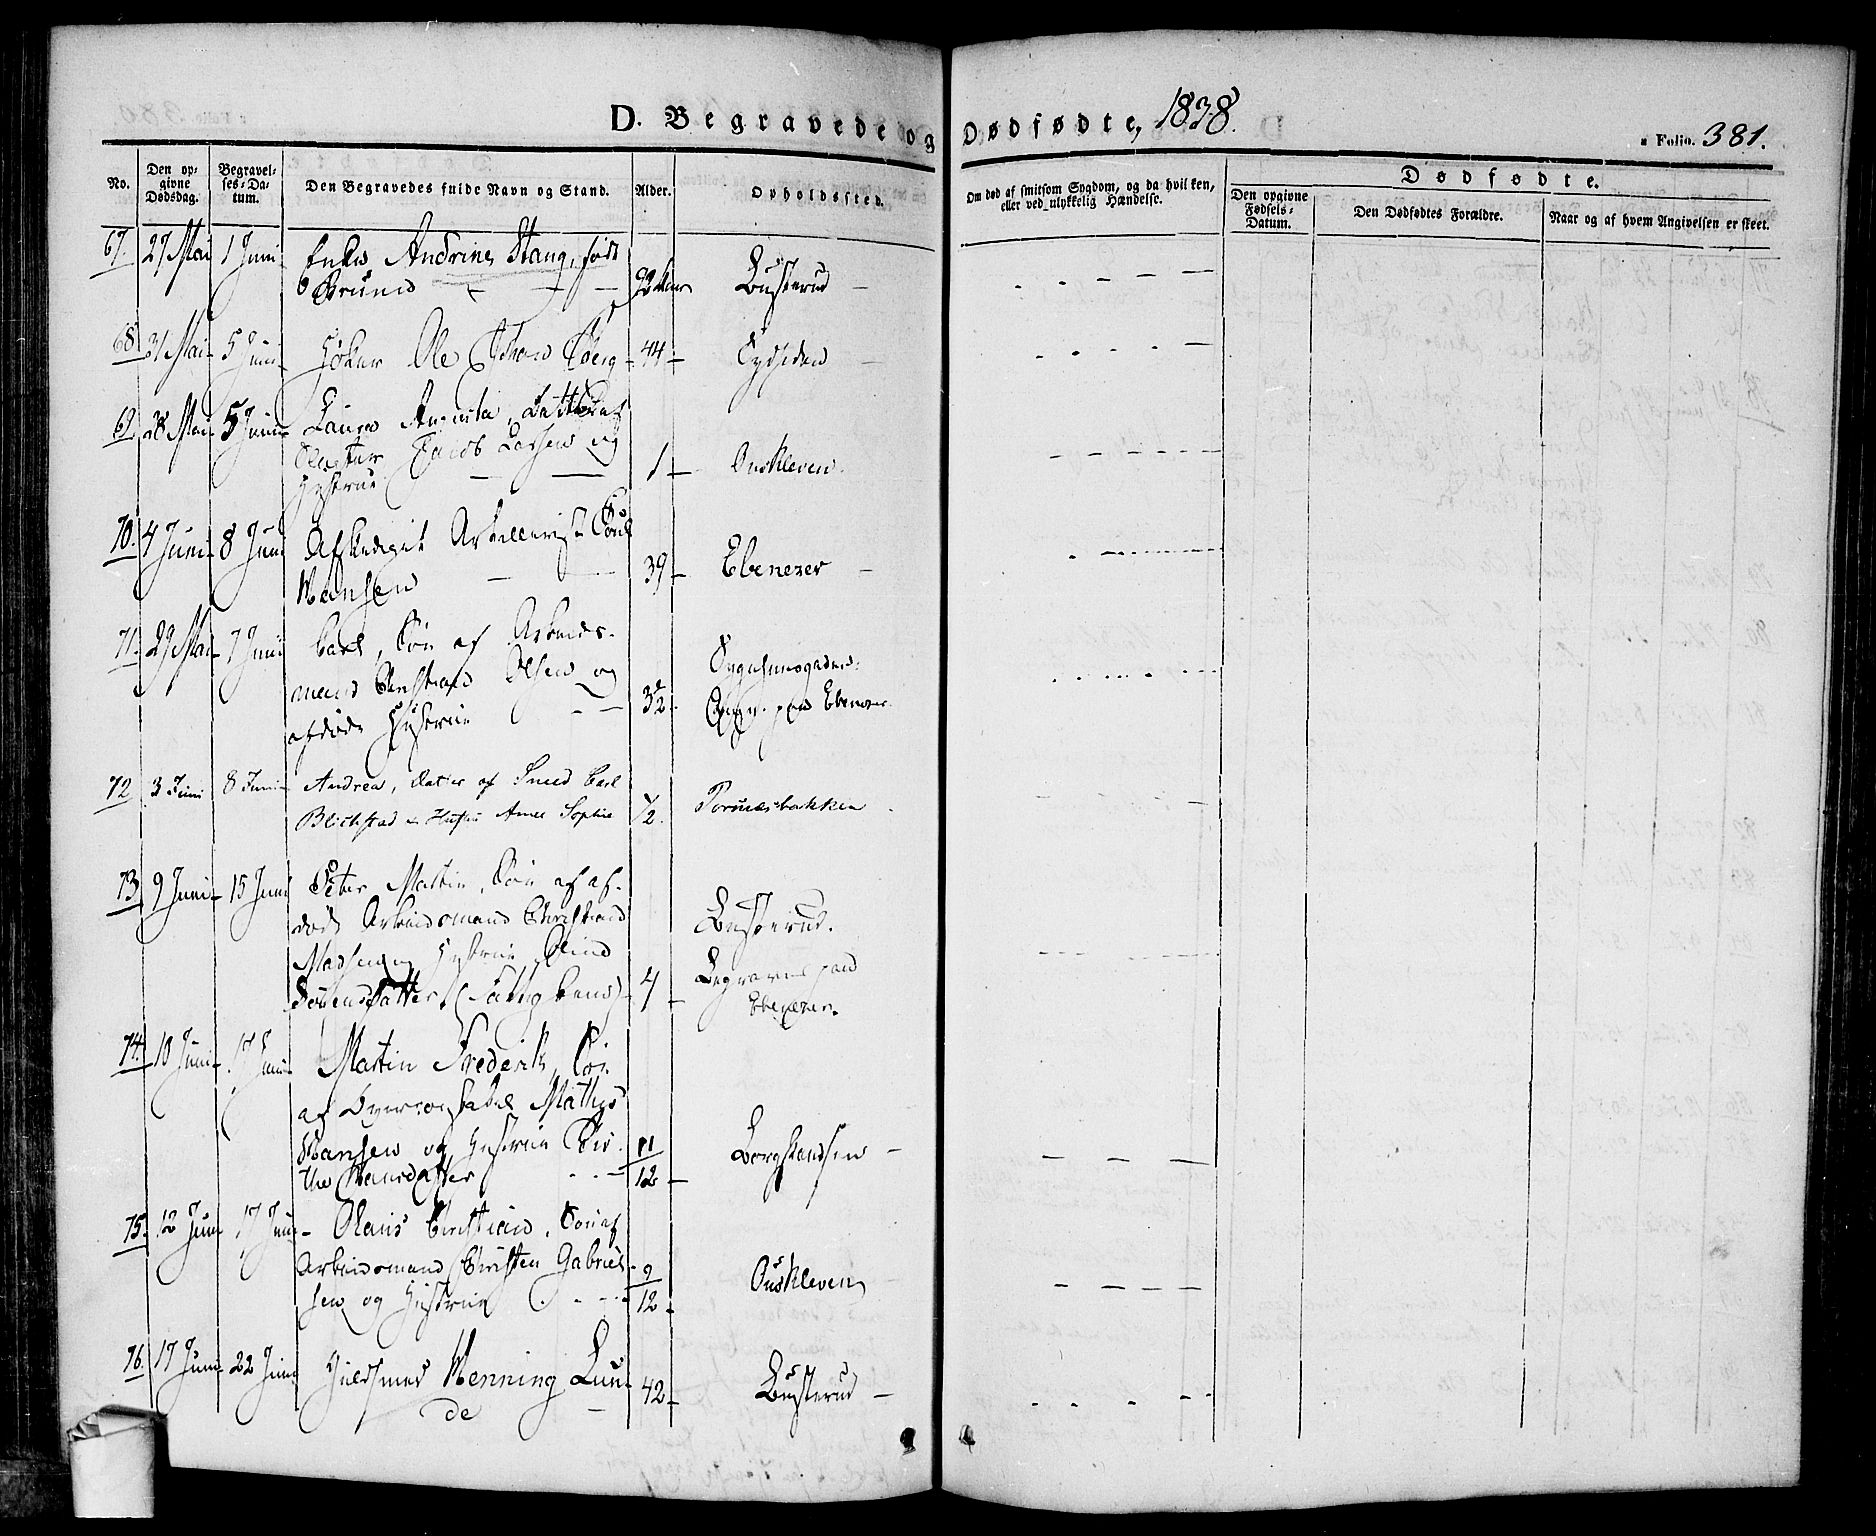 D. Begravede og Dødfødte, 1838.
Folio. 381.
No.
Den opgivne Dødsdag.
Begravelses-Datum.
Den Begravedes fulde Navn og Stand.
Alder.
Opholdssted.
Om død af smitsom Sygdom, og da hvilken,
eller ved ulykkelig Hændelse.
Dødfødte.
Den opgivne Fødsels-Datum.
Den Dødfødtes Forældre.
Naar og af hvem Angivelsen er skeet.
67. 27 Mai 1 Juni Enke Andrine Stang, født
Brun Busterud
68. 31 Mai 5 Juni Høker Ole Johan Berg 44 Sydsiden
69. 28 Mai 5 Juni Laura Augusta, Datter af
Jacob Larsen og
Hustrue 1 Ouskleven.
70. 4 Juni 8 Juni Afskediget Artillerist Poul
Hansen 39 Ebenezer
71. 29 Mai 7 Juni Carl, Søn af Arbeids-
mand Christian Olsen og
afdøde Hustrue 3½
paa Ebenezer
72 3 Juni 8 Juni Andrea, Datter af Smed Carl
Blichstad Anne Sophie ½. Tornæsbakken
73. 9 Juni 15 Juni Peter Martin, Søn af af-
døde Arbeidsmand Christian
Madsen og Hustrue Oline
Sørensdatter. 4
Busterud.
Begraven paa
Ebenezer.
74. 10 Juni 17 Juni Martin Frederik, Søn
af Mathis
Hansen og Hustrue Bir-
the Hansdatter 11/12
75. 12 Juni 17 Juni Olaus Christian, Søn af
Arbeidsmand Christen Gabriel-
sen og Hustrue 9/12 Ouskleven
76. 17 Juni 22 Juni Guldsmed Henning Lun-
de 42 Busterud